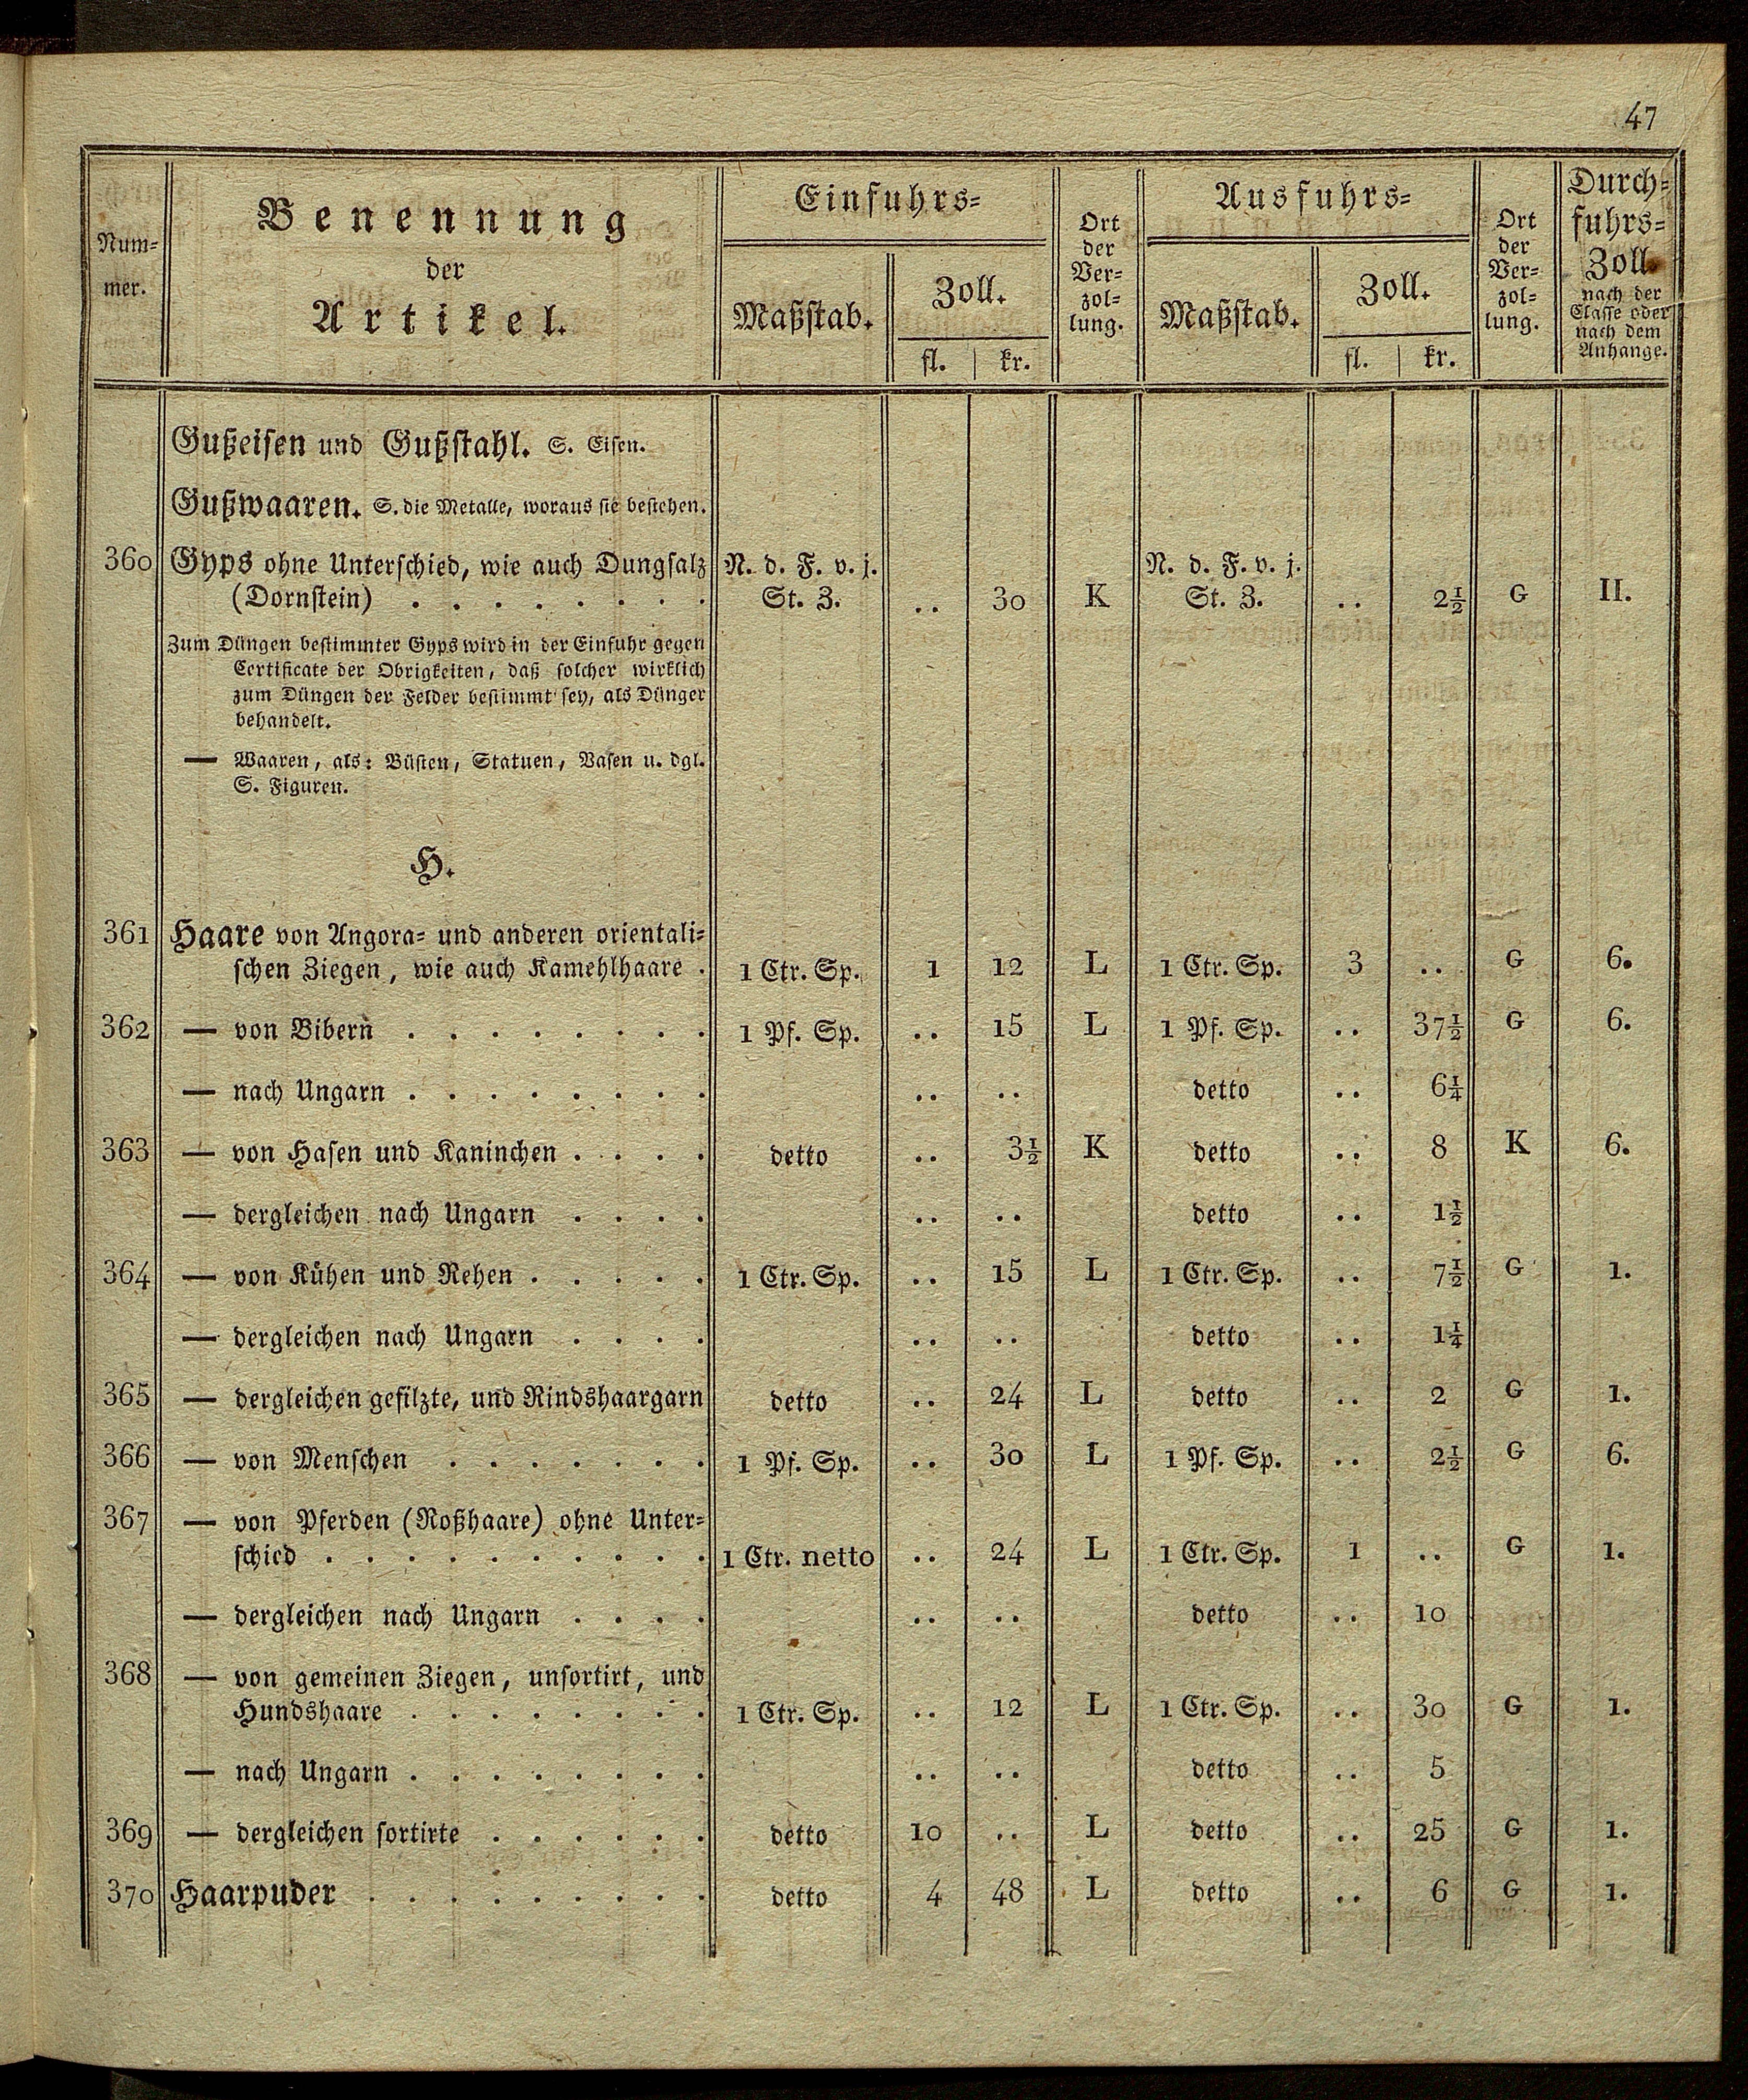 47
Num-
mer.
Benennung
der
Artikel.
Einfuhrs-
Maßstab.
Zoll.
fl. | kr.
Ort
der
Ver-
zol-
lung.
Ausfuhrs-
Maßstab.
Zoll.
fl. | kr.
Ort
der
Ver-
zol-
lung.
Durch-
fuhrs-
Zoll
nach der
Classe oder
nach dem
Anhange.
Gußeisen und Gußstahl. S. Eisen.
Gußwaaren. S. die Metalle, woraus sie bestehen.
360 Gyps ohne Unterschied, wie auch Dungsalz N. d. F. v. j. N. d. F. v. j.
(Dornstein) . . . . . . . . St. Z. .. 30 K St. Z. .. 2½ G II.
Zum Düngen bestimmter Gyps wird in der Einfuhr gegen
Certificate der Obrigkeiten, daß solcher wirklich
zum Düngen der Felder bestimmt sey, als Dünger
behandelt.
— Waaren, als: Büsten, Statuen, Vasen u. dgl.
S. Figuren.
H.
361 Haare von Angora- und anderen orientali-
schen Ziegen, wie auch Kamehlhaare . 1 Ctr. Sp. 1 12 L 1 Ctr. Sp. 3 .. G 6.
362 — von Bibern . . . . . . . . 1 Pf. Sp. .. 15 L 1 Pf. Sp. .. 37½ G 6.
— nach Ungarn . . . . . . . . .. .. detto .. 6¼
363 — von Hasen und Kaninchen . . . . detto .. 3½ K detto .. 8 K 6.
— dergleichen nach Ungarn . . . . .. .. detto .. 1½
364 — von Kühen und Rehen . . . . . 1 Ctr. Sp. .. 15 L 1 Ctr. Sp. .. 7½ G 1.
— dergleichen nach Ungarn . . . . .. .. detto .. 1¼
365 — dergleichen gefilzte, und Rindshaargarn detto .. 24 L detto .. 2 G 1.
366 — von Menschen . . . . . . . 1 Pf. Sp. .. 30 L 1 Pf. Sp. .. 2½ G 6.
367 — von Pferden (Roßhaare) ohne Unter-
schied . . . . . . . . . . 1 Ctr. netto .. 24 L 1 Ctr. Sp. 1 .. G 1.
— dergleichen nach Ungarn . . . . .. .. detto .. 10
368 — von gemeinen Ziegen, unsortirt, und
Hundshaare . . . . . . . . 1 Ctr. Sp. .. 12 L 1 Ctr. Sp. .. 30 G 1.
— nach Ungarn . . . . . . . . .. .. detto .. 5
369 — dergleichen sortirte . . . . . . detto 10 .. L detto .. 25 G 1.
370 Haarpuder . . . . . . . . . detto 4 48 L detto .. 6 G 1.